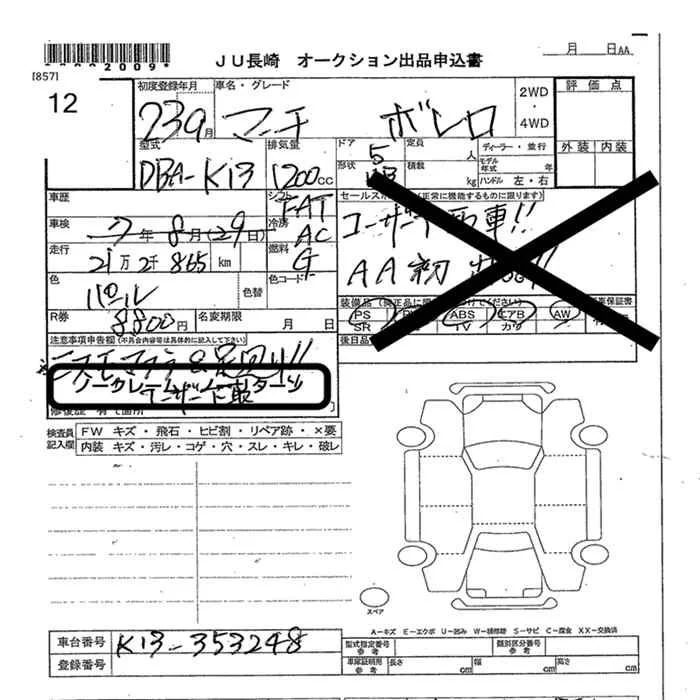 0002009
JU長崎 オークション出品申込書
月 日AA
[857]
12
初度登録年月
23 9月
車名・グレード
マーチ ボレロ
2WD
・
4WD
評価点
外装 内装
型式
DBA-K13
排気量
1200cc
ドア
5
定員
人
ディーラー・並行
形状
積載
kg
モデル年式
年
ハンドル 左・右
車歴
シフト
FAT
車検
7年 8月(29日)
冷房
AC
走行
21万2千865km
燃料
G
色
パール
色替
色コード
R券
8800円
名変期限
月 日
セールスポ
(正常に機能するものに限ります)
ユーザー買取車!!
AA初出品!!
装備品
PS
ABS
エアB
AW
SR
TV
カワ
車保証書
後日品
注意事項申告欄(不具合内容等は具体的に記入して下さい)
検査員
記入欄
FW キズ・飛石・ヒビ割・リペア跡・×要
内装 キズ・汚レ・コゲ・穴・スレ・キレ・破レ
スペア
A-キズ E-エクボ U-凹み W-補修跡 S-サビ C-腐食 XX-交換済
車台番号
K13-353248
登録番号
型式指定番号
参考
類別区分番号
参考
車庫証明用
参考
長さ
cm
幅
cm
高さ
cm